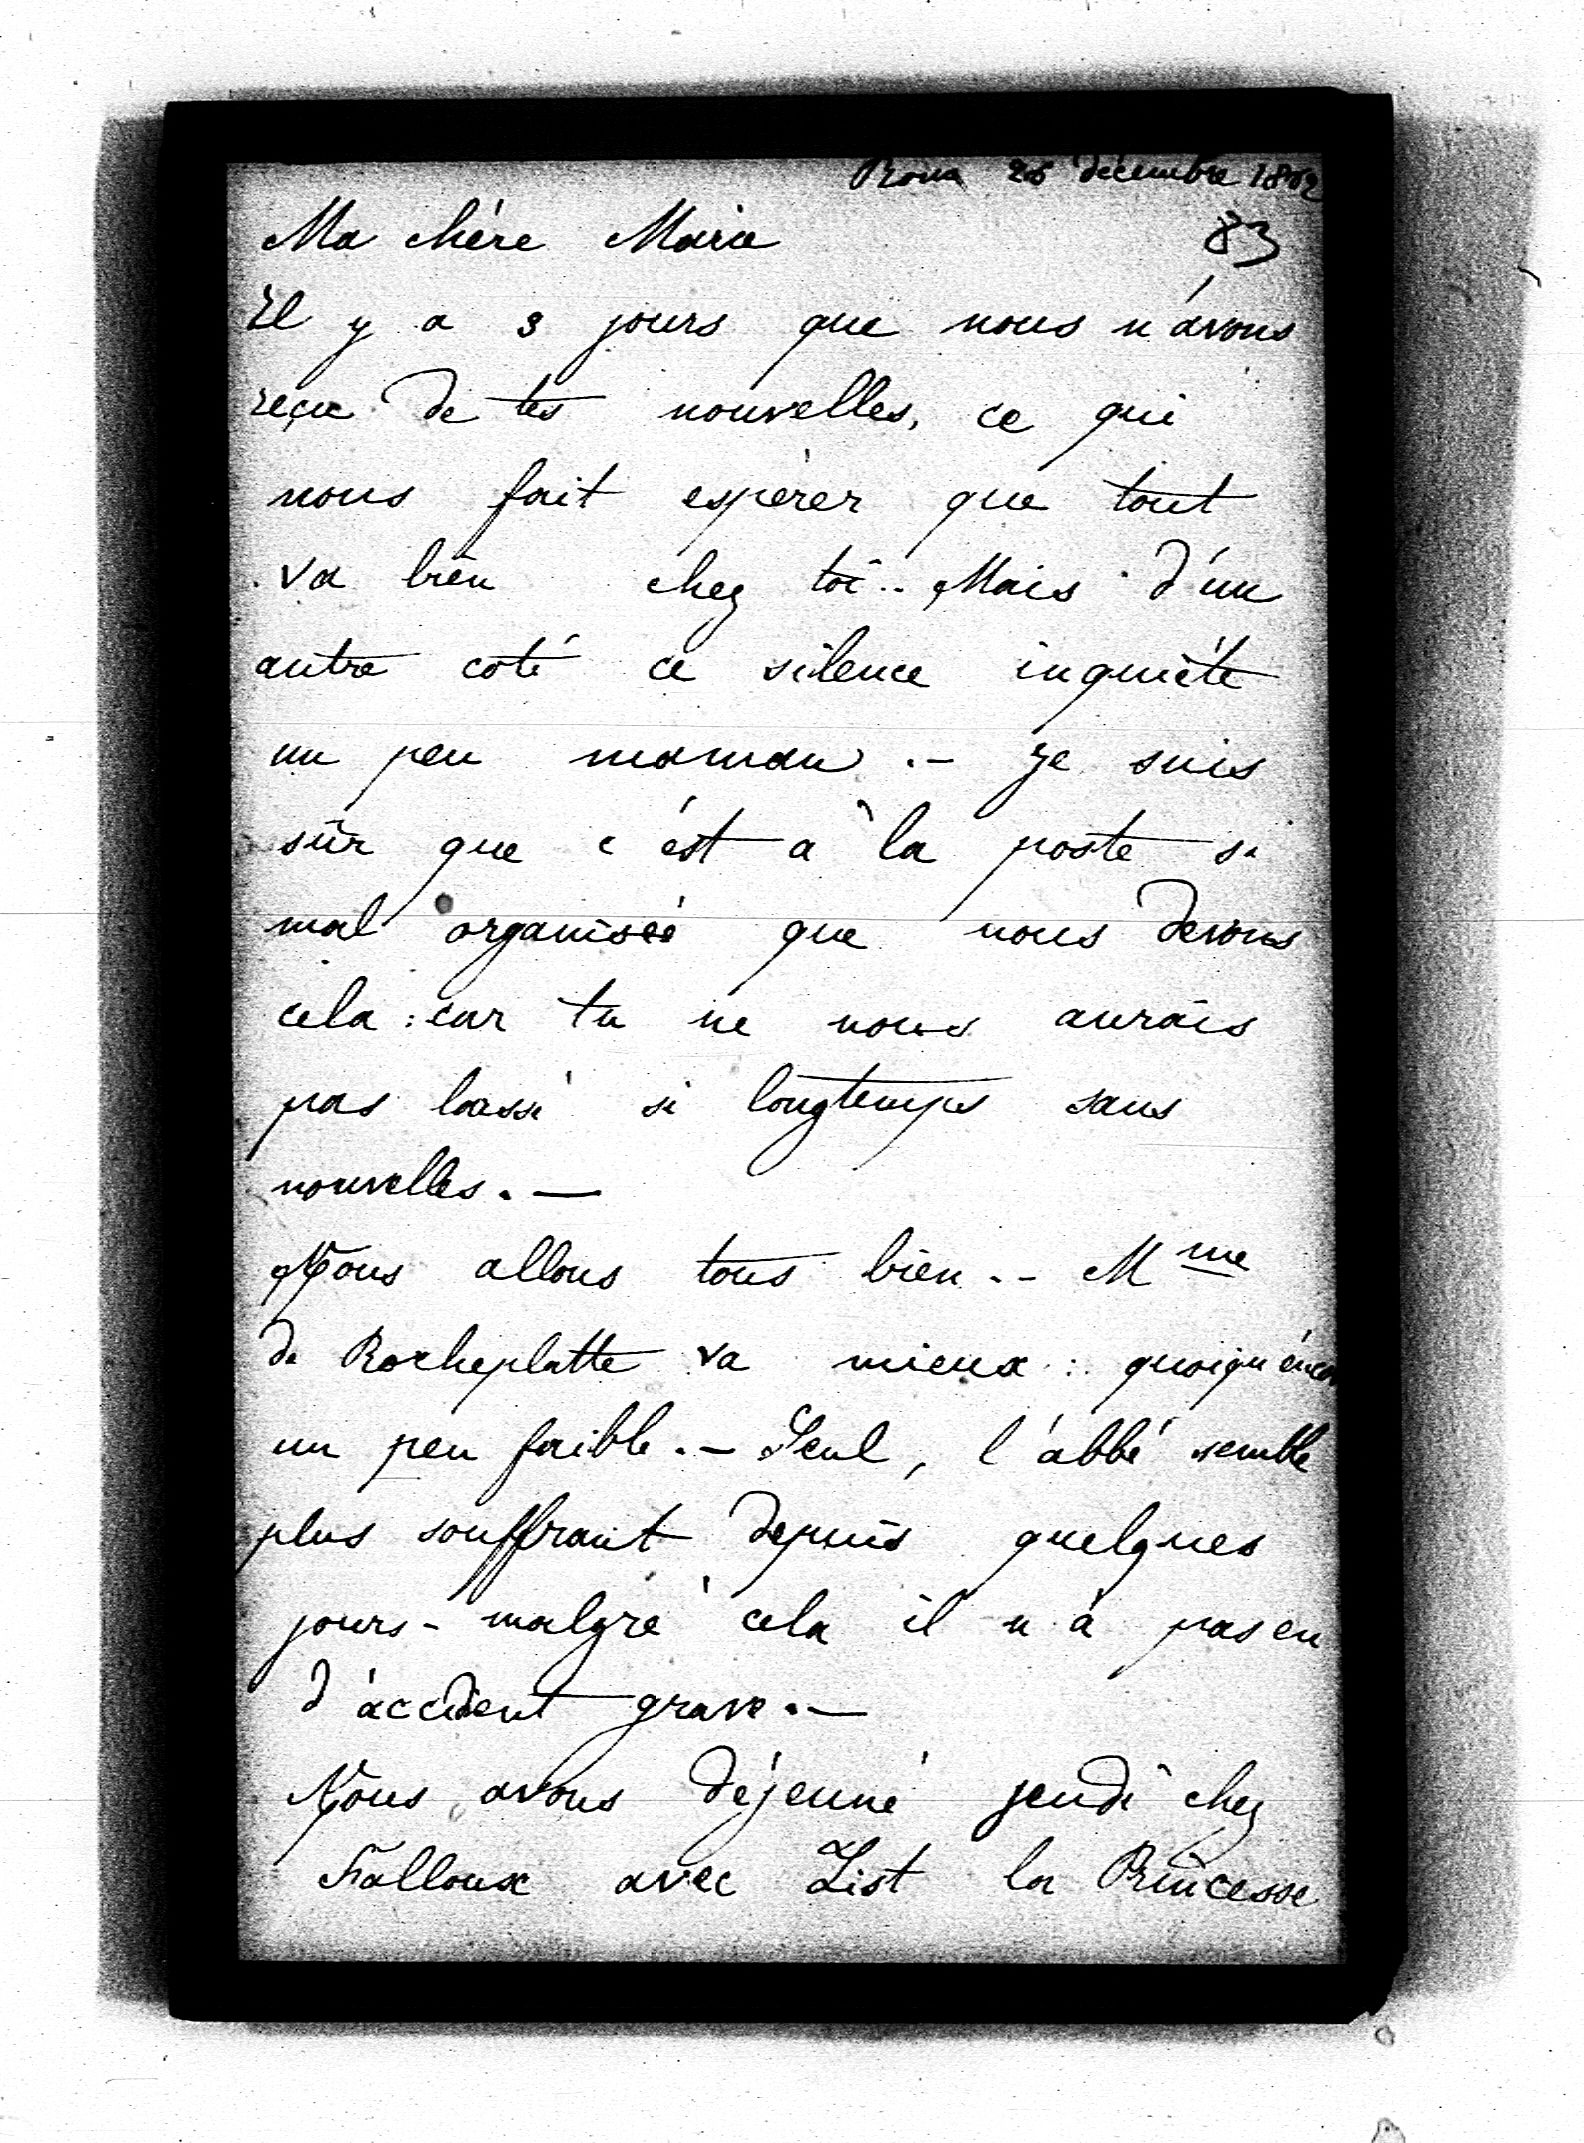 Rome 26 décembre 1862
83
Ma chère Marie
Il y a 8 jours que nous n'avons
reçu de tes nouvelles, ce qui
nous fait espérer que tout
va bien chez toi.. Mais d'un
autre coté ce silence inquiète
un peu maman.- Je suis
sûr que c'est à la poste si
mal organisée que nous devons
cela : car tu ne nous aurais
pas laissé si longtemps sans
nouvelles.—
Nous allons tous bien.- Mme
de Rocheplatte va mieux : quoiqu'encor
un peu faible.- Seul, l'abbé semble
plus souffrant depuis quelques
jours - malgré cela il n'a pas eu
d'accident grave.—
Nous avons déjeuné jeudi chez
Falloux avec List la Princesse